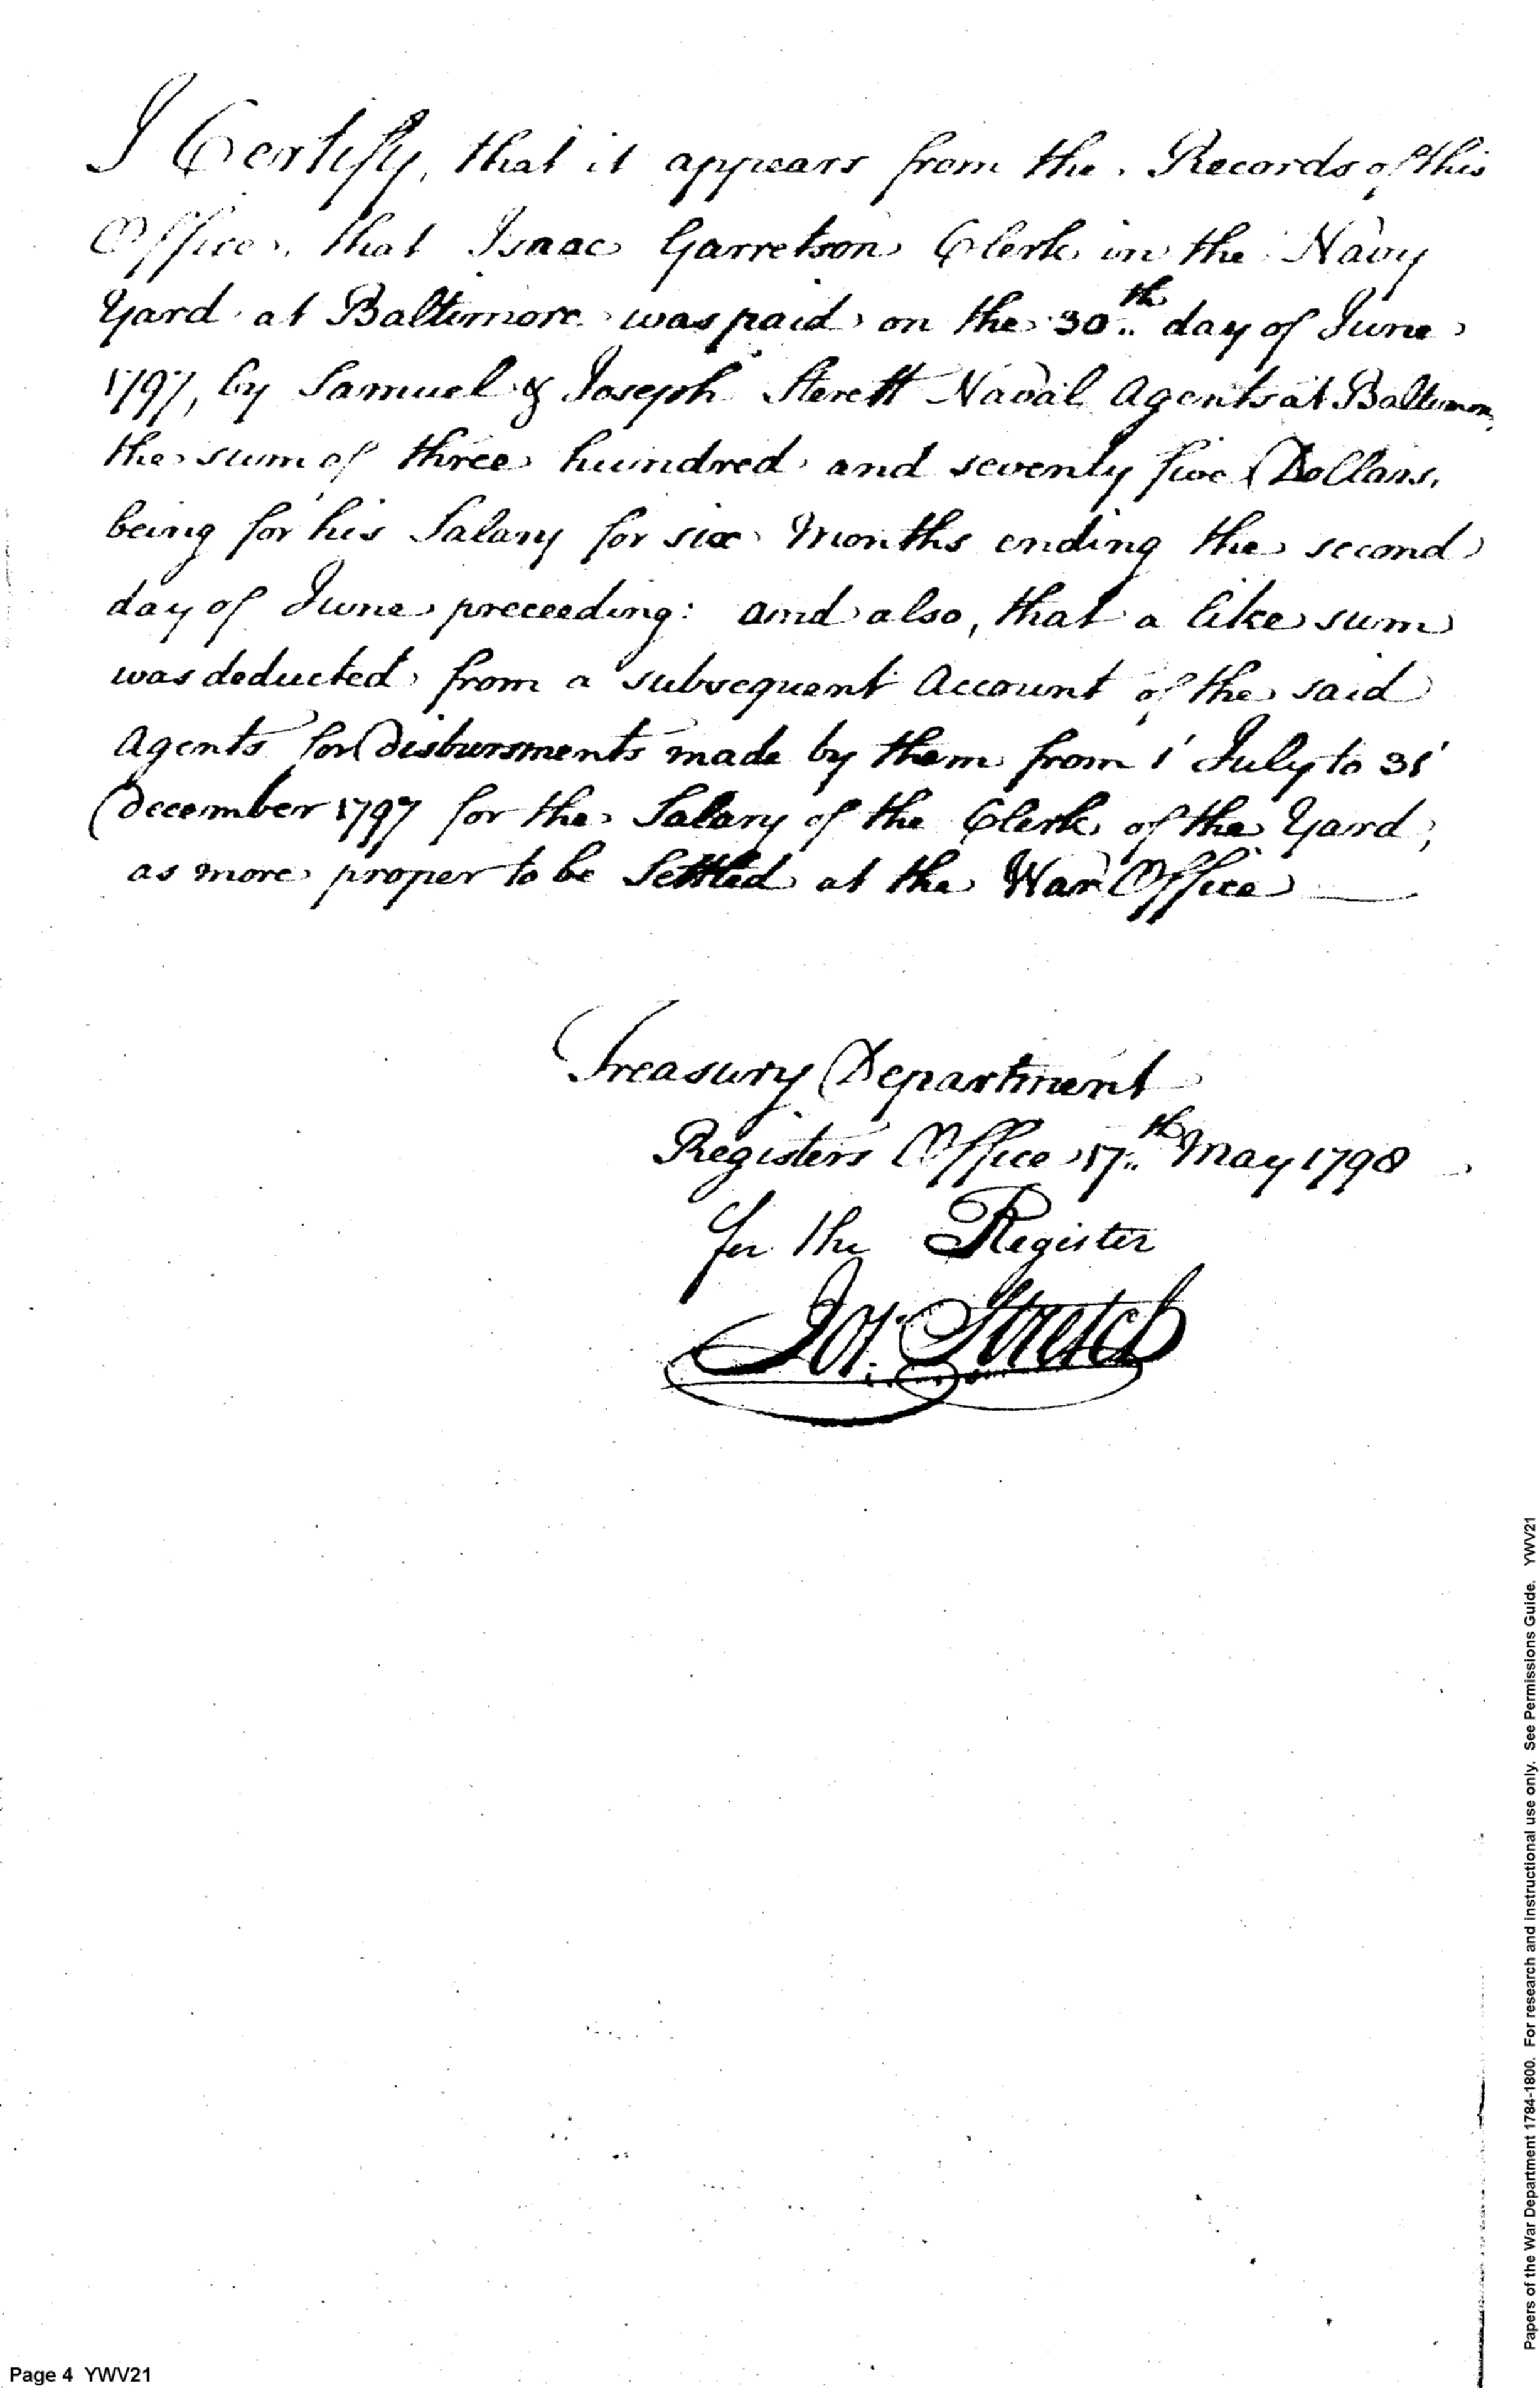 I Certify, that it appears from the Records of this
Office, that Isaac Garretson Clerk in the Navy
Yard at Baltimore was paid on the 30th day of June
1797, by Samuel & Joseph Sterett Naval Agents at Baltimore,
the sum of three hundred and seventy five Dollars,
being for his Salary for six Months ending the second
day of June preceeding: and also, that a like sum
was deducted from a subsequent Account of the said
Agents for disbursments made by them from 1' July to 31'
December 1797 for the Salary of the Clerk of the Yard,
as more proper to be Settled at the War Office
Treasury Department
Registers Office 17th May 1798
for the Register
Jos: Stretch
Papers of the War Department 1784-1800. For research and instructional use only. See Permissions Guide. YWV21
Page 4 YWV21